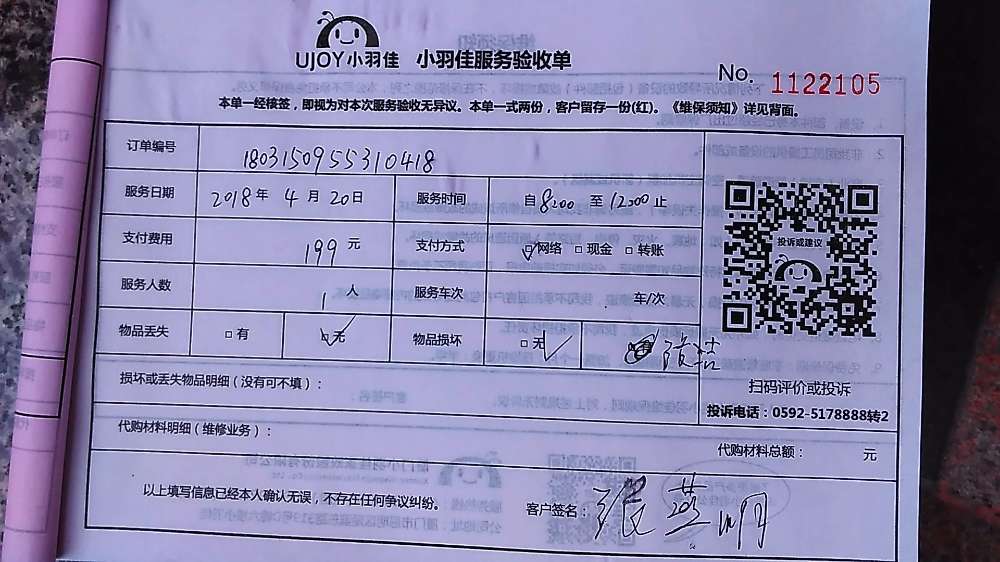 UJOY小羽佳 小羽佳服务验收单
No. 1122105
本单一经核签，即视为对本次服务验收无异议。本单一式两份，客户留存一份(红)。《维保须知》详见背面。
订单编号 1803150955310418
服务日期 2018年4月20日 服务时间 自8:00至12:00止
支付费用 199元 支付方式 □网络 □现金 □转账
服务人数 1人 服务车次 车/次
物品丢失 □有 □无 物品损坏 □无
投诉或建议
损坏或丢失物品明细（没有可不填）：
扫码评价或投诉
投诉电话：0592-5178888转2
代购材料明细（维修业务）：
代购材料总额： 元
以上填写信息已经本人确认无误，不存在任何争议纠纷。
客户签名：张燕